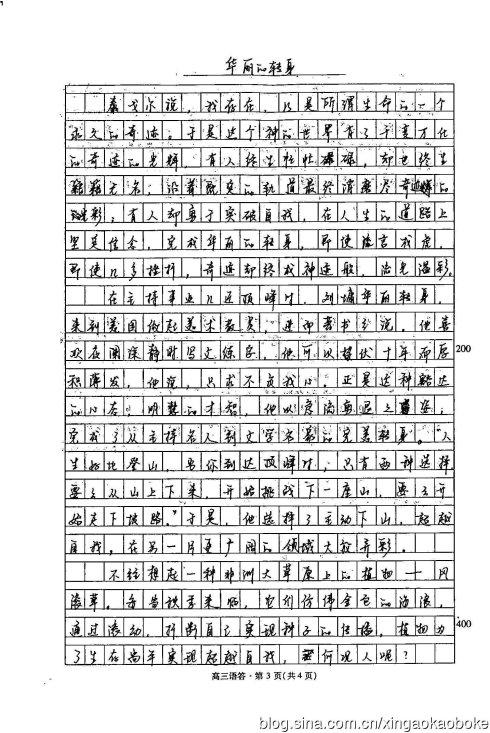 华丽的转身
泰戈尔说，我存在，乃是所谓生命的一个
永久的奇迹。于是这个神的世界有了千变万化
的奇迹的光辉。有人终生忙忙碌碌，却也终生
籍籍无名；沿着既定的轨道最终消磨尽奇迹的
光彩；有人却勇于突破自我，在人生的道路上
坚定信念，完成华丽的转身，即使流言成虎，
即使几多挫折，奇迹却终成神迹般，浴光溢彩。
在主持事业几近顶峰时，刘墉华丽转身，
来到美国做起美术教员，进而著书立说。他喜
欢在阑深静时写文练字，他可以蛰伏十年而厚
积薄发，他说，只求不负我心。正是这种豁达
的心态，明慧的才智，他以鸾凤夐迥之姿，
完成了从主持名人到文学名家的完美转身。"人
生如比登山，当你到达顶峰时，只有两种选择，
要么从山上下来，开始挑战下一座山，要么开
始走下坡路。"于是，他选择了主动下山，超越
自我，在另一片更广阔的领域大放异彩。
不经想起一种非洲大草原上的植物——风
滚草。每当秋季来临，它们仿佛金色的海浪，
通过滚动，折断自己实现种子的传播，植物为
了生存尚牟实现超越自我，何况人呢？
200
400
高三语答·第3页(共4页)
blog.sina.com.cn/xingaokaoboke